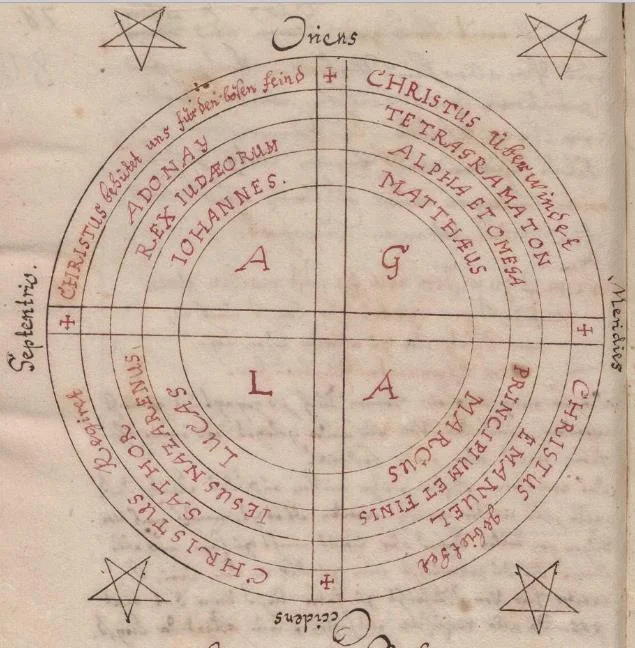 Oriens
CHRISTUS behütet uns für den bösen feind
CHRISTUS Überwindet
ADONAY
TETRAGRAMATON
REX IUDÆORUM
ALPHA ET OMEGA
IOHANNES.
MATTHÆUS
A
G
Septentrio.
Meridies
L
A
LUCAS
MARCUS
IESUS NAZARENUS
PRINCIPIUM ET FINIS
SATHOR
EMANUEL
CHRISTUS Regirt
CHRISTUS gebietet
Occidens